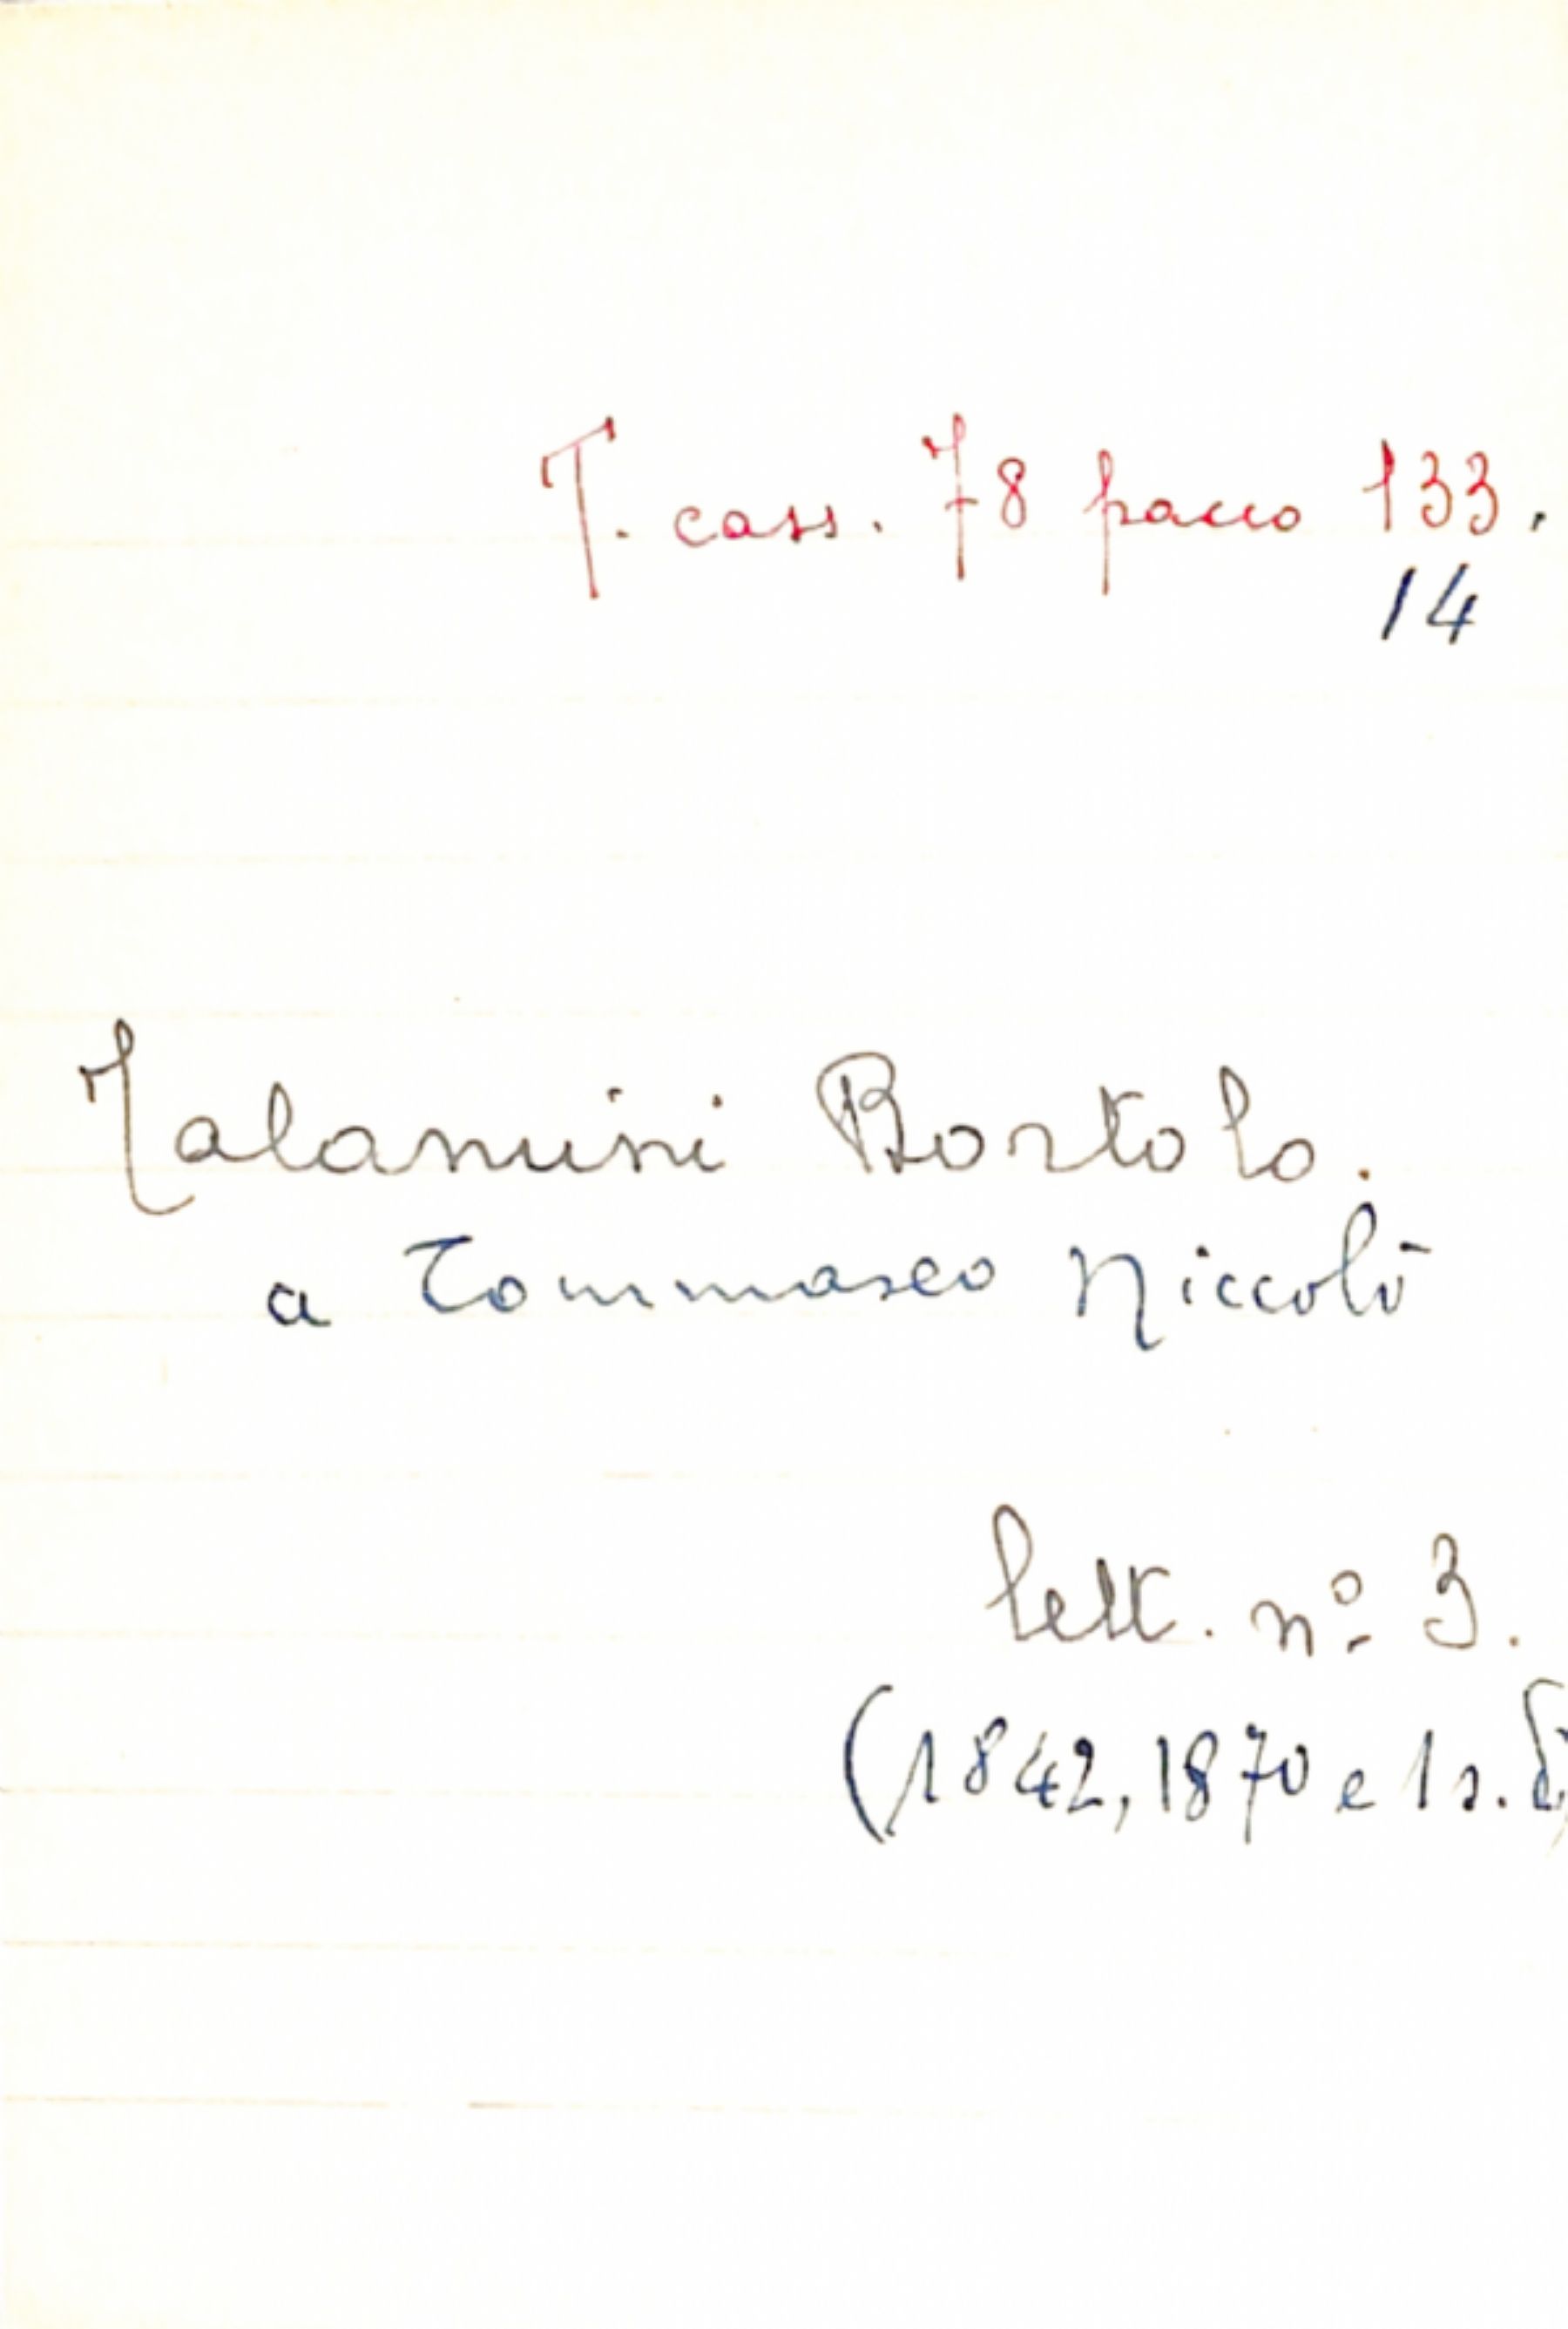 T. cass. 78 pacco 133.
14
Talamini Bortolo.
a Tommaseo Niccolò
lett. nº 3.
(1842, 1870 e 1 s.d)